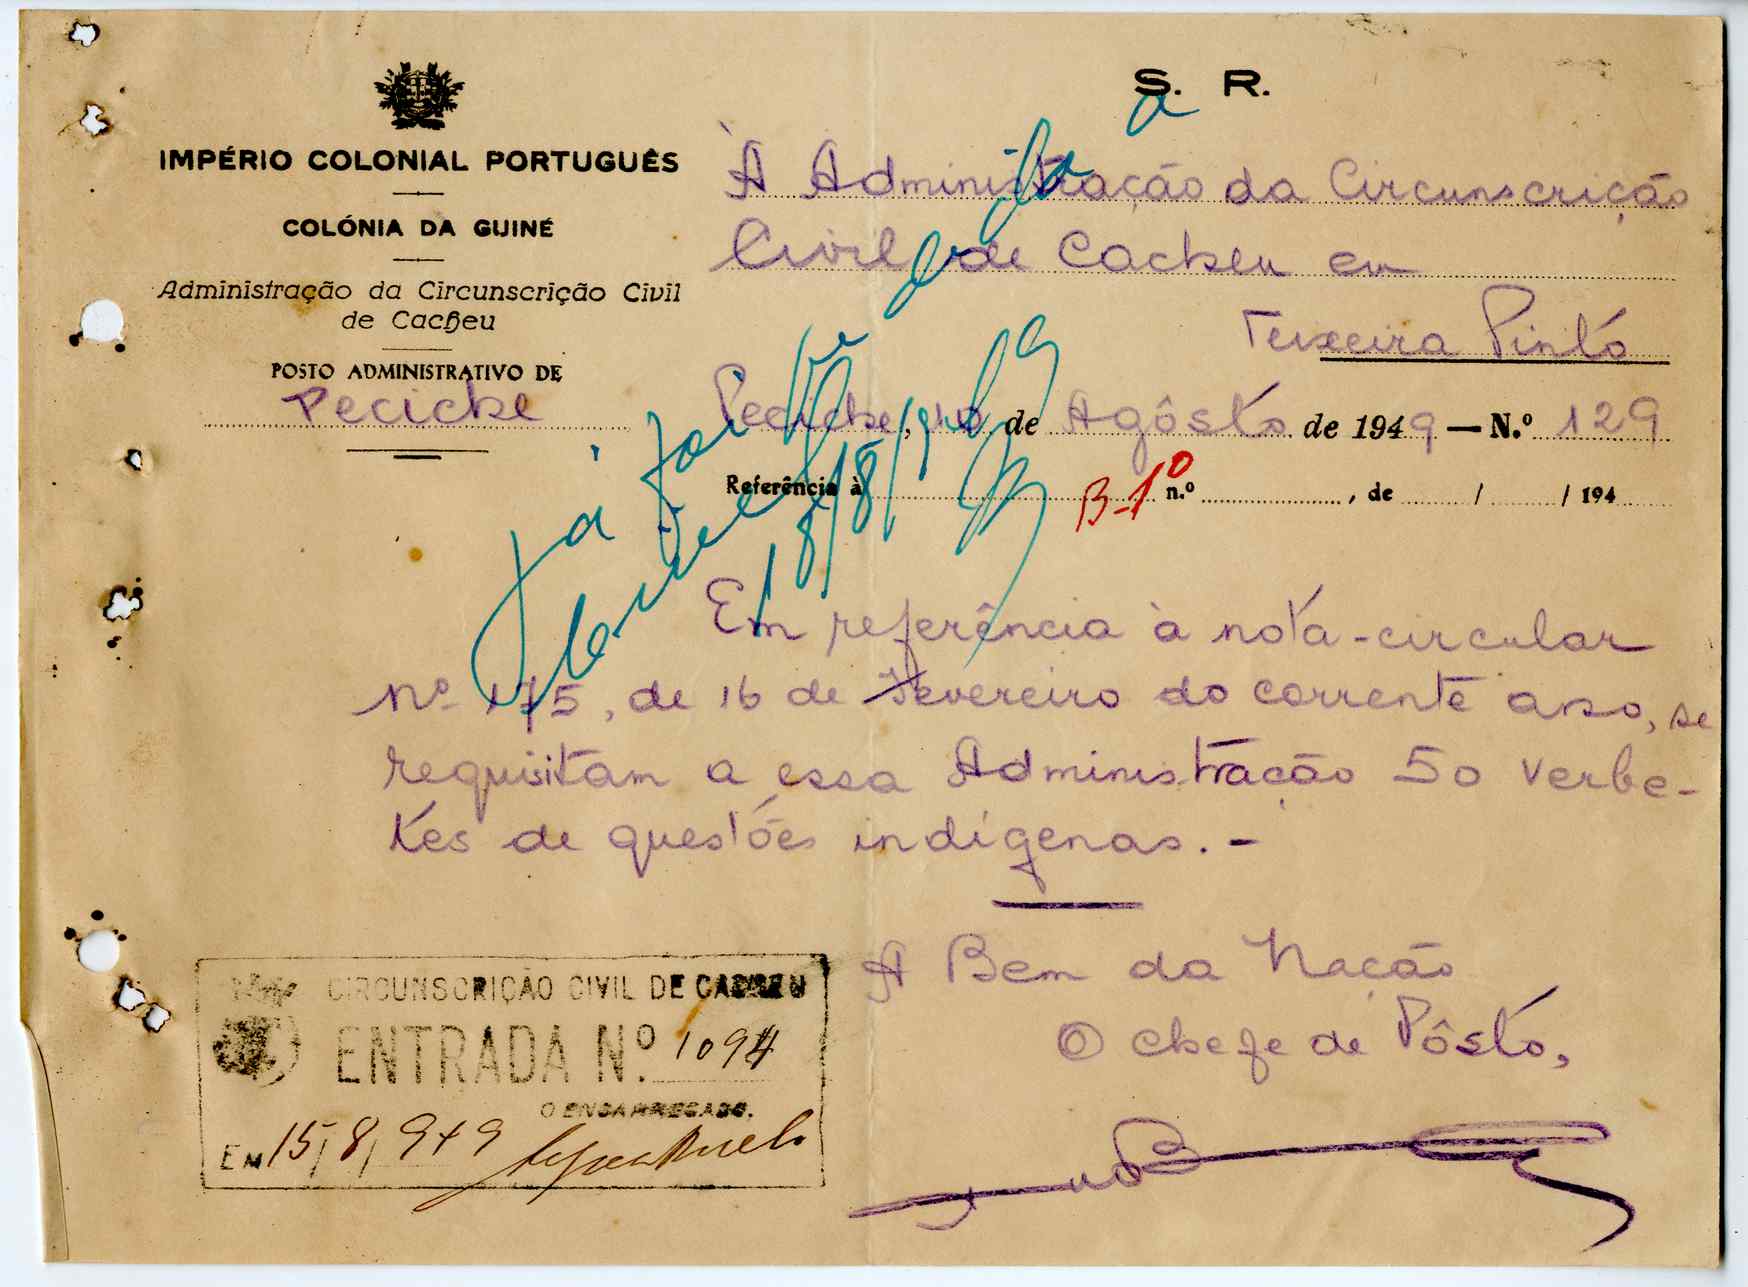 S. R.
IMPÉRIO COLONIAL PORTUGUÊS
COLÓNIA DA GUINÉ
Administração da Circunscrição Civil
de Cacheu
POSTO ADMINISTRATIVO DE
Pecicke
À Administração da Circunscrição
Civil de Cacheu em
Teixeira Pinto
Pecicke, de Agôsto de 1949 — N.º 129
Referência à B-1º n.º , de / / 194
Já foi
18/8/949
Em referência à nota-circular
nº 175, de 16 de Fevereiro do corrente ano, se
requisitam a essa Administração 50 verbe-
tes de questões indígenas. -
A Bem da Nação
O chefe de Pôsto,
CIRCUNSCRIÇÃO CIVIL DE CACHEU
ENTRADA N.º 1094
O ENCARREGADO.
EM 15/8/949